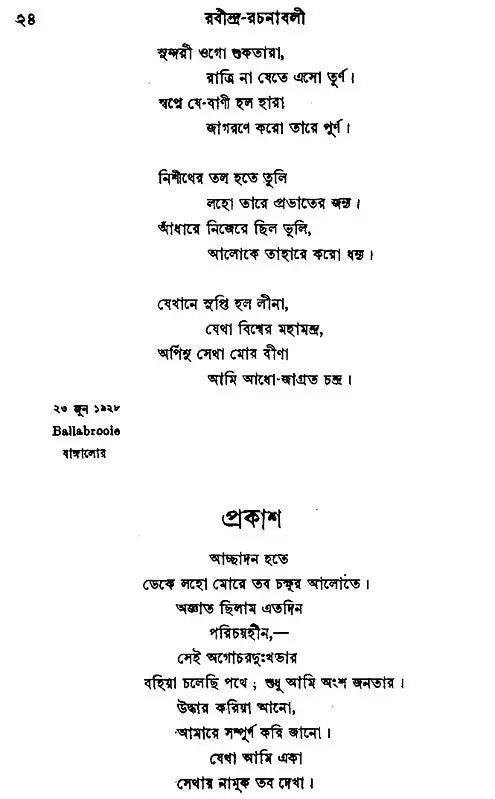 ২৪
রবীন্দ্র-রচনাবলী
সুন্দরী ওগো শুকতারা,
রাত্রি না যেতে এসো তূর্ণ।
স্বপ্নে যে-বাণী হল হারা
জাগরণে করো তারে পূর্ণ।
নিশীথের তল হতে তুলি
লহো তারে প্রভাতের জন্য।
আঁধারে নিজেরে ছিল ভুলি,
আলোকে তাহারে করো ধন্য।
যেখানে সুপ্তি হল লীনা,
যেথা বিশ্বের মহামন্দ্র,
অর্পিনু সেথা মোর বীণা
আমি আধো-জাগ্রত চন্দ্র।
২৩ জুন ১৯২৮
Ballabrooie
বাঙ্গালোর
প্রকাশ
আচ্ছাদন হতে
ডেকে লহো মোরে তব চক্ষুর আলোতে।
অজ্ঞাত ছিলাম এতদিন
পরিচয়হীন,—
সেই অগোচরদুঃখভার
বহিয়া চলেছি পথে; শুধু আমি অংশ জনতার।
উদ্ধার করিয়া আনো,
আমারে সম্পূর্ণ করি জানো।
যেথা আমি একা
সেথায় নামুক তব দেখা।